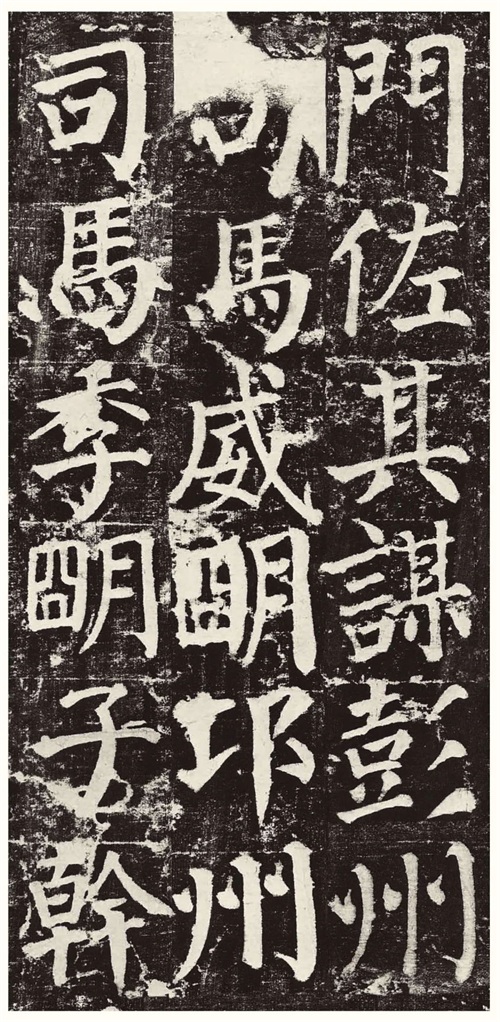 門佐其謀彭州
司馬威朙邛州
司馬季朙子幹